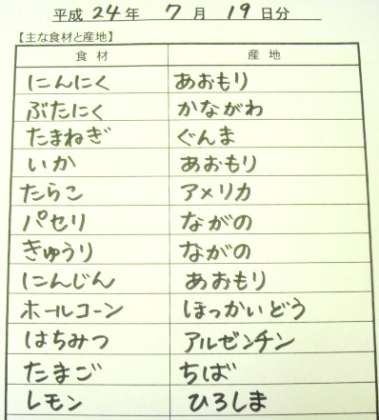 平成 24 年 7 月 19 日分
【主な食材と産地】
食材 産地
にんにく あおもり
ぶたにく かながわ
たまねぎ ぐんま
いか あおもり
たらこ アメリカ
パセリ ながの
きゅうり ながの
にんじん あおもり
ホールコーン ほっかいどう
はちみつ アルゼンチン
たまご ちば
レモン ひろしま